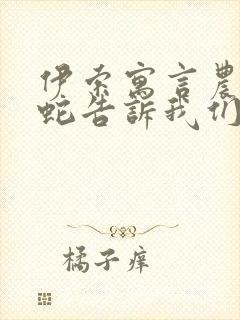 伊索寓言農
蛇告訴我们
橘子庠